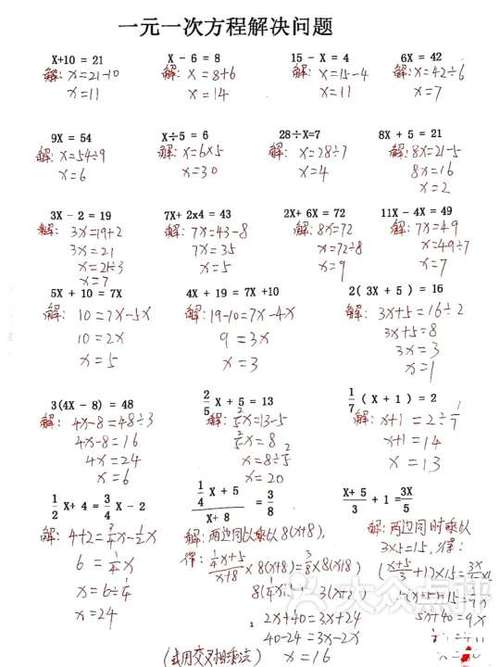 一元一次方程解决问题
X+10 = 21
解: x=21-10
x=11
X - 6 = 8
解: x=8+6
x=14
15 - X = 4
解: x=15-4
x=11
6X = 42
解: x=42÷6
x=7
9X = 54
解: x=54÷9
x=6
X÷5 = 6
解: x=6×5
x=30
28÷X=7
解: x=28÷7
x=4
8X + 5 = 21
解: 8x=21-5
8x=16
x=2
3X - 2 = 19
解: 3x=19+2
3x=21
x=21÷3
x=7
7X+ 2x4 = 43
解: 7x=43-8
7x=35
x=5
2X+ 6X = 72
解: 8x=72
x=72÷8
x=9
11X - 4X = 49
解: 7x=49
x=49÷7
x=7
5X + 10 = 7X
解: 10=7x-5x
10=2x
x=5
4X + 19 = 7X +10
解: 19-10=7x-4x
9=3x
x=3
2( 3X + 5 ) = 16
解: 3x+5=16÷2
3x+5=8
3x=3
x=1
3(4X - 8) = 48
解: 4x-8=48÷3
4x-8=16
4x=24
x=6
2/5 X + 5 = 13
解: 2/5x=13-5
2/5x=8
x=8÷2/5
x=20
1/7 ( X + 1 ) = 2
解: x+1=2÷1/7
x+1=14
x=13
1/2 X+ 4 = 3/4 X - 2
解: 4+2=3/4x-1/2x
6=1/4x
x=6÷1/4
x=24
(1/4 X + 5)/(X+ 8) = 3/8
解: 两边同以乘以8(x+8),
得: (1/4x+5)/(x+8)×8(x+8)=3/8×8(x+8)
2x+40=3x+24
40-24=3x-2x
x=16
(试用交叉相乘法)
(X+ 5)/3 + 1 = 3X/5
解: 两边同时乘以
3×5=15, 得:
大众点评